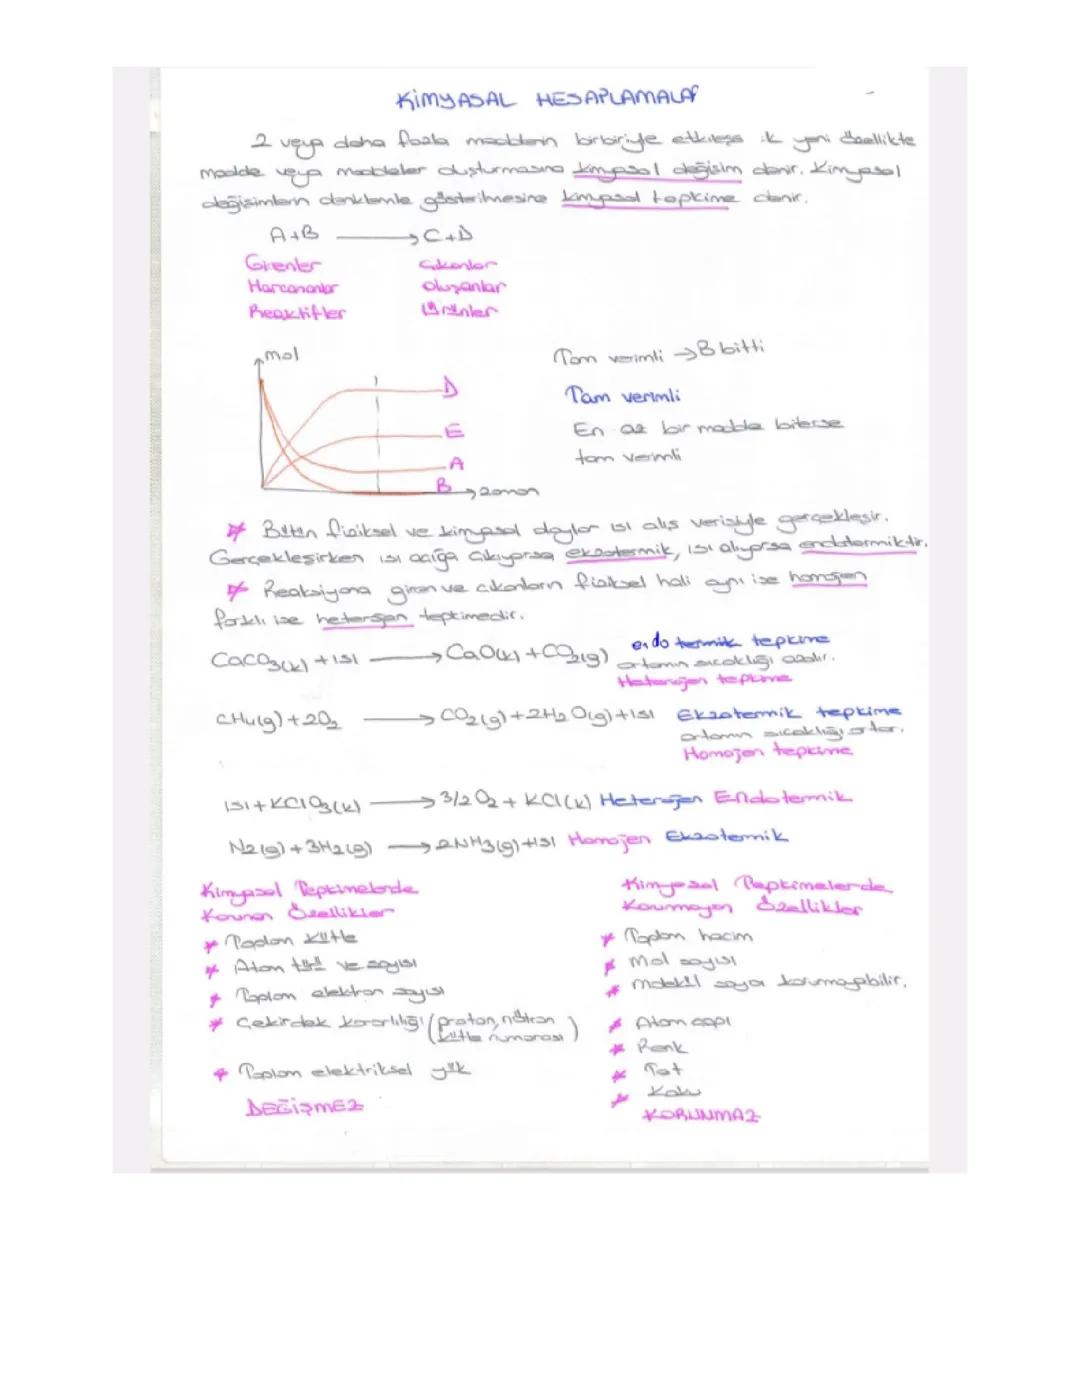 KİMYASAL HESAPLAMALAR
2 veya daha fazla maddenin birbiriyle etkileşerek yeni özellikte
madde veya maddeler oluşturmasına kimyasal değişim denir. Kimyasal
değişimlerin denklemle gösterilmesine kimyasal tepkime denir.
A+B → C+D
Girenler Çıkanlar
Harcananlar Oluşanlar
Reaktifler Ürünler
mol
D
E
A
B
zaman
Tam verimli → B bitti
Tam verimli
En az bir madde biterse
tam verimli
Bütün fiziksel ve kimyasal olaylar ısı alış verişiyle gerçekleşir.
Gerçekleşirken ısı açığa çıkıyorsa ekzotermik, ısı alıyorsa endotermiktir.
Reaksiyona giren ve çıkanların fiziksel hali aynı ise homojen
farklı ise heterojen tepkimedir.
CaCO3(k) + ısı → CaO(k) + CO2(g) endotermik tepkime
ortamın sıcaklığı azalır.
Heterojen tepkime
CH4(g) + 2O2 → CO2(g) + 2H2O(g) + ısı Ekzotermik tepkime
ortamın sıcaklığı artar.
Homojen tepkime
ısı + KClO3(k) → 3/2 O2 + KCl(k) Heterojen Endotermik
N2(g) + 3H2(g) → 2NH3(g) + ısı Homojen Ekzotermik
Kimyasal Tepkimelerde
Korunan Özellikler
* Toplam kütle
* Atom türü ve sayısı
* Toplam elektron sayısı
* Çekirdek kararlılığı (proton, nötron
kütle numarası)
* Toplam elektriksel yük
DEĞİŞMEZ
Kimyasal Tepkimelerde
Korunmayan Özellikler
* Toplam hacim
* Mol sayısı
* Molekül sayısı korunmayabilir.
* Atom çapı
* Renk
* Tat
* Koku
KORUNMAZ